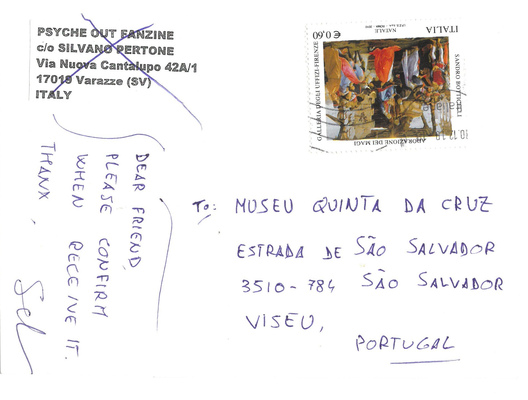 PSYCHE OUT FANZINE
c/o SILVANO PERTONE
Via Nuova Cantalupo 42A/1
17019 Varazze (SV)
ITALY
DEAR FRIEND,
PLEASE CONFIRM
WHEN RECEIVE IT.
THANX.
ITALIA
€ 0,60
NATALE
SANDRO BOTTICELLI
ADORAZIONE DEI MAGI
GALLERIA DEGLI UFFIZI-FIRENZE
TO: MUSEU QUINTA DA CRUZ
ESTRADA DE SÃO SALVADOR
3510-784 SÃO SALVADOR
VISEU,
PORTUGAL